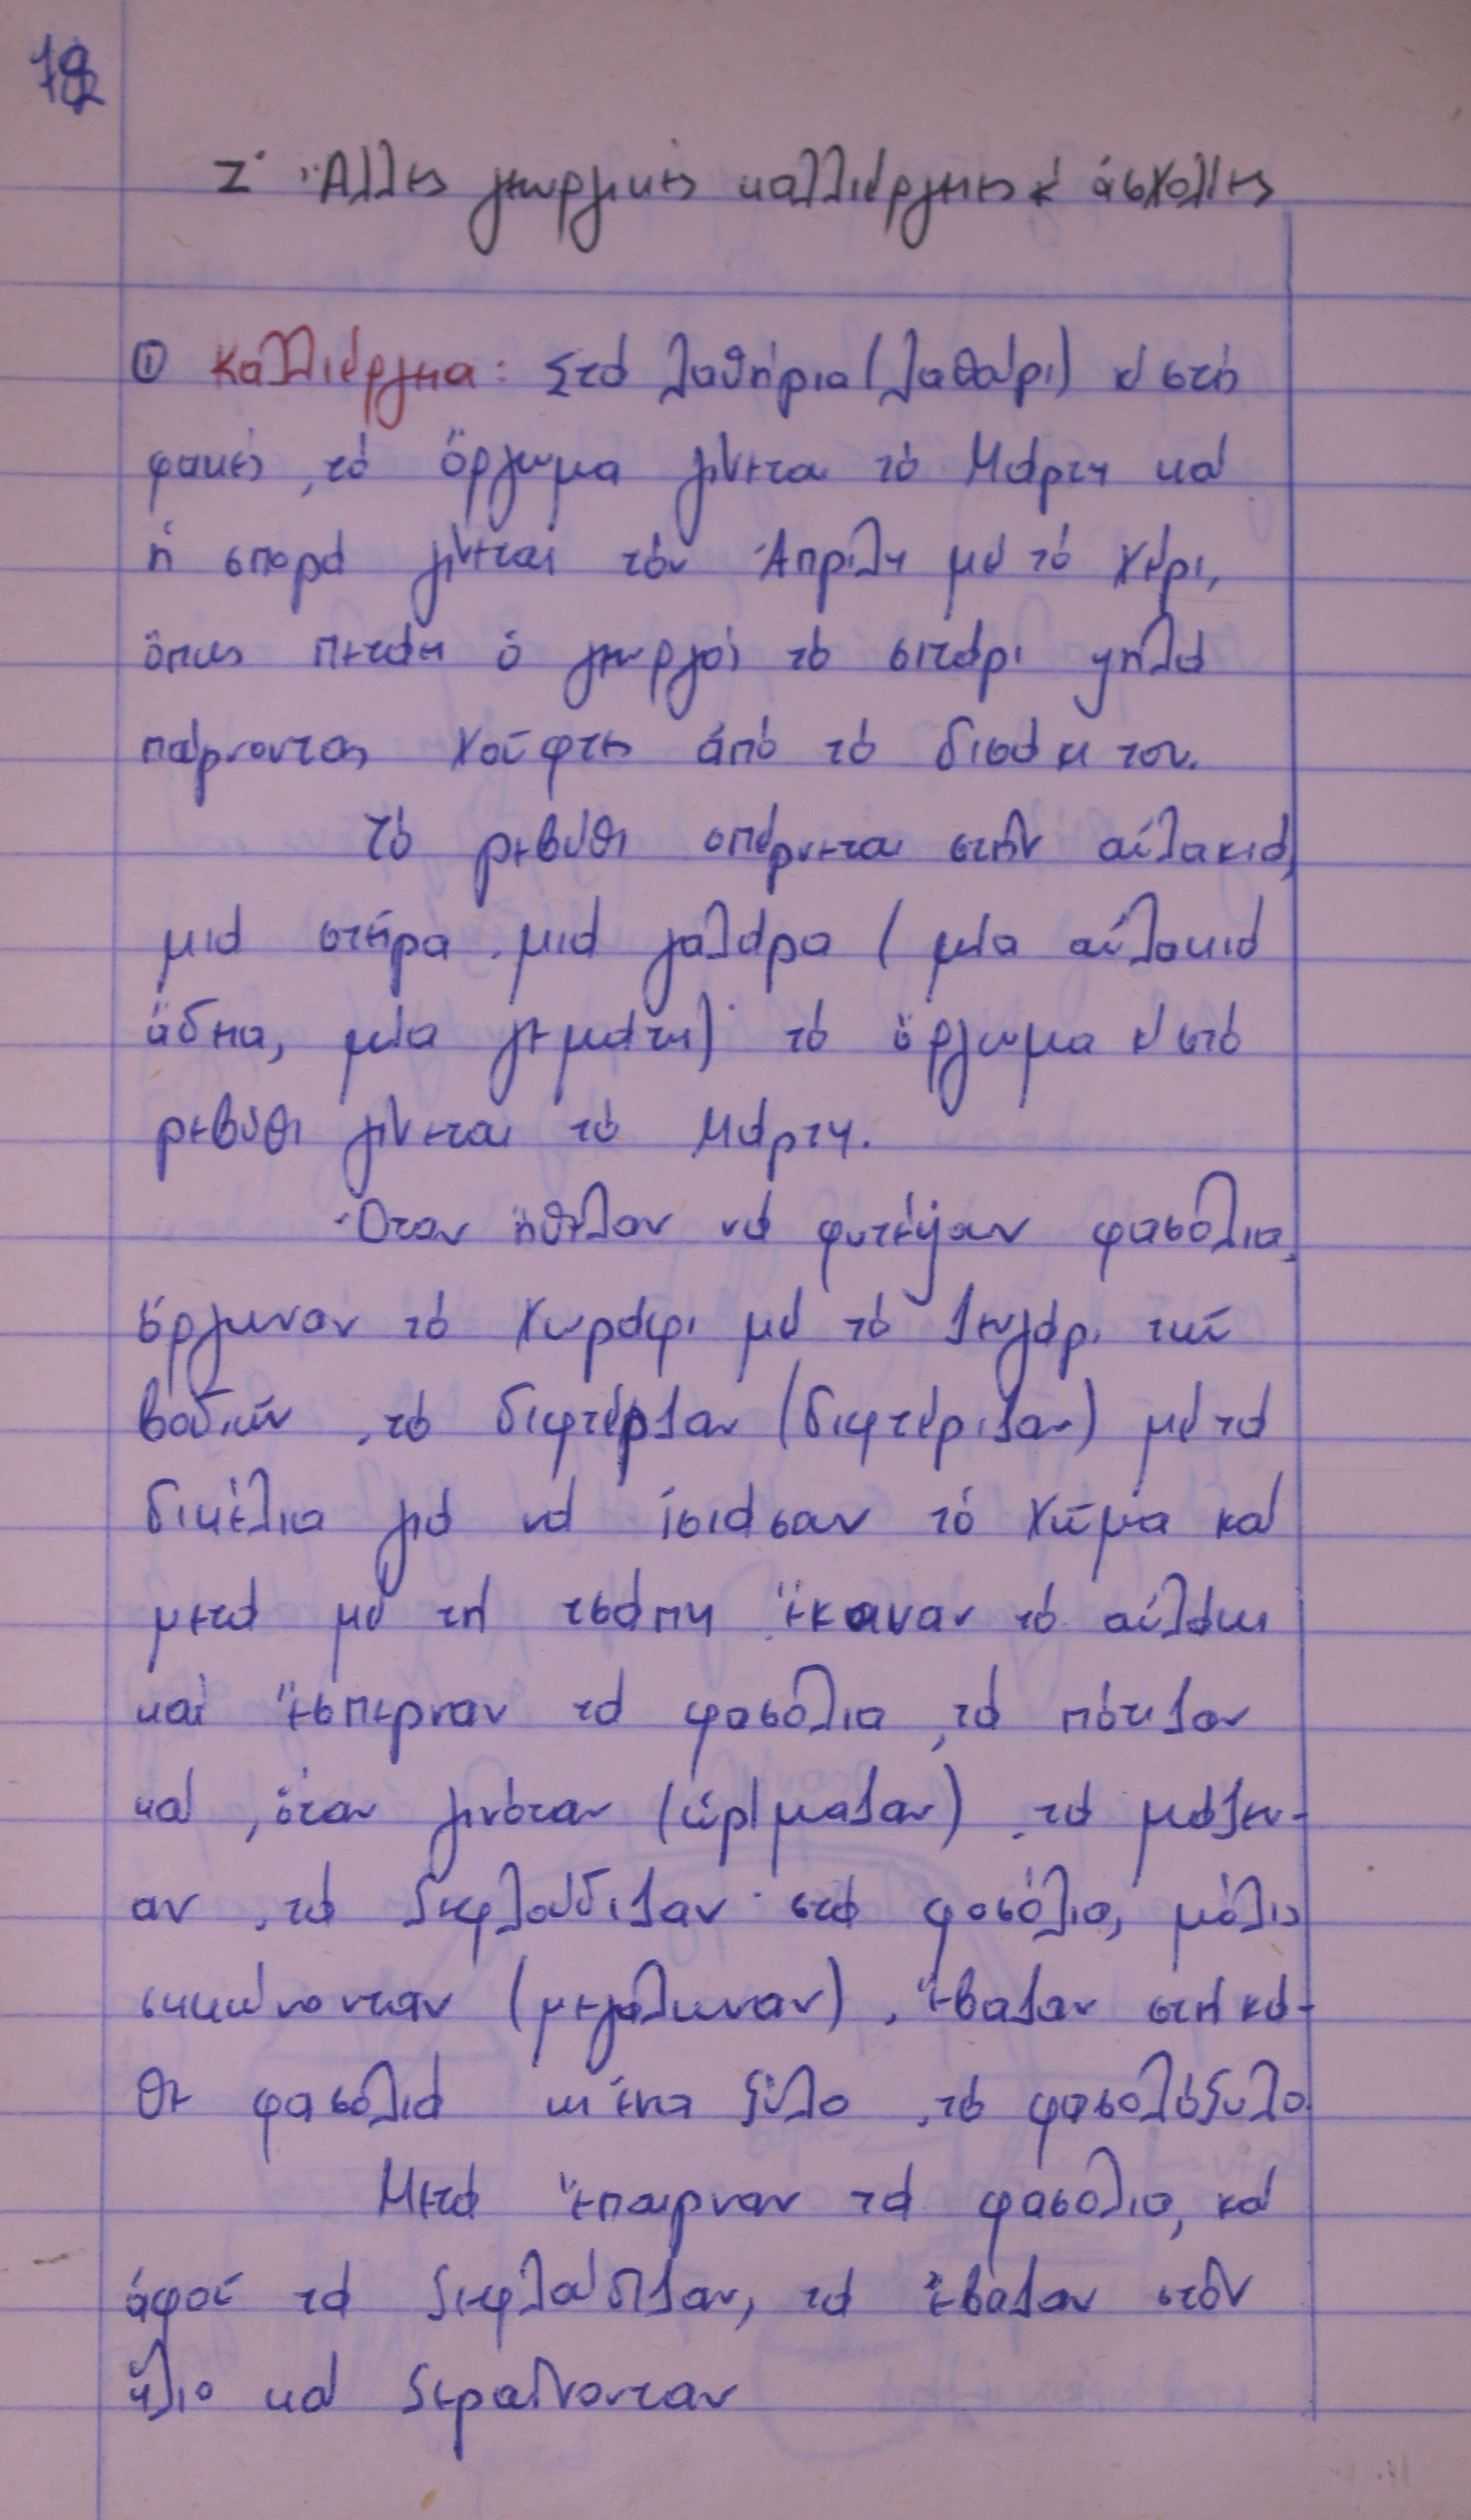 Ζ΄ Ἄλλες γεωργικές καλλιέργειες κ' ἀσχολίες
① Καλλιέργεια: Στά λαθήρια (λαθούρι) κ' στή
φακές, τό ὄργωμα γίνεται τό Μάρτη καί
ἡ σπορά γίνεται τόν Ἀπρίλη μέ τό χέρι,
ὅπως πετάει ὁ γεωργός τό σιτάρι ψηλά
παίρνοντας χοῦφτες ἀπό τό δισάκι του.
Τό ρεβύθι σπέρνεται στήν αὐλακιά,
μιά στείρα, μιά γαλάρα (μία αὐλακιά
ἄδεια, μία γεμάτη)· τό ὄργωμα κ' στό
ρεβύθι γίνεται τό Μάρτη.
Ὅταν ἤθελαν νά φυτέψαν φασόλια,
ὄργωναν τό χωράφι μέ τό ζευγάρι τῶν
βοδιῶν, τό διφτέρζαν (διφτέριζαν) μέ τά
δικέλια γιά νά ἰσιάσαν τό χῶμα καί
μετά μέ τή τσάπη ἔκαναν τό αὐλάκι
καί ἔσπερναν τά φασόλια, τά πότιζαν
καί, ὅταν γινόταν (ὡρίμαζαν), τά μάζευ-
αν, τά ξεφλούδιζαν· στά φασόλια, μόλις
σηκώνονταν (μεγάλωναν), ἔβαζαν στή κά-
θε φασολιά κι ἕνα ξύλο, τό φασολόξυλο.
Μετά ἔπαιρναν τά φασόλια, καί
ἀφοῦ τά ξεφλούδιζαν, τά ἔβαζαν στόν
ἥλιο καί ξεραίνονταν